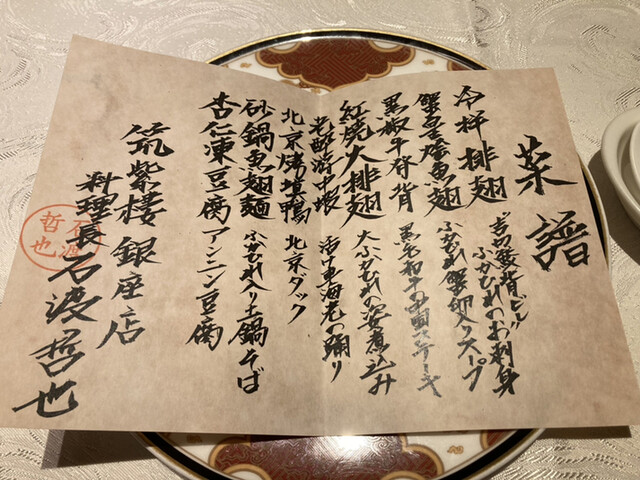 菜譜
冷拌排翅 吉切鮫背ビレ
ふかひれのお刺身
蟹黄燴魚翅 ふかひれ蟹卵入りスープ
黒椒牛脊背 黒毛和牛の中国ステーキ
紅焼大排翅 大ふかひれの姿煮込み
老酔游中蝦 活け車海老の踊り
北京烤填鴨 北京ダック
砂鍋魚翅麺 ふかひれ入り土鍋そば
杏仁凍豆腐 アンニン豆腐
筑紫楼銀座店
料理長 石渡哲也
石渡哲也